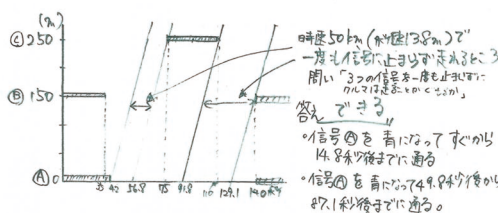 (m)
Ⓒ 250
Ⓑ 150
Ⓐ 0
35 42 56.8 75 91.8 110 129.1 140
時速50km(秒速13.8m)で
一度も信号に止まらず走れるところ
問い「3つの信号を一度も止まらずに
クルマは走ることができるか」
答え できる
・信号Ⓐを青になってすぐから
14.8秒後までに通る
・信号Ⓐを青になって49.8秒後から
87.1秒後までに通る。